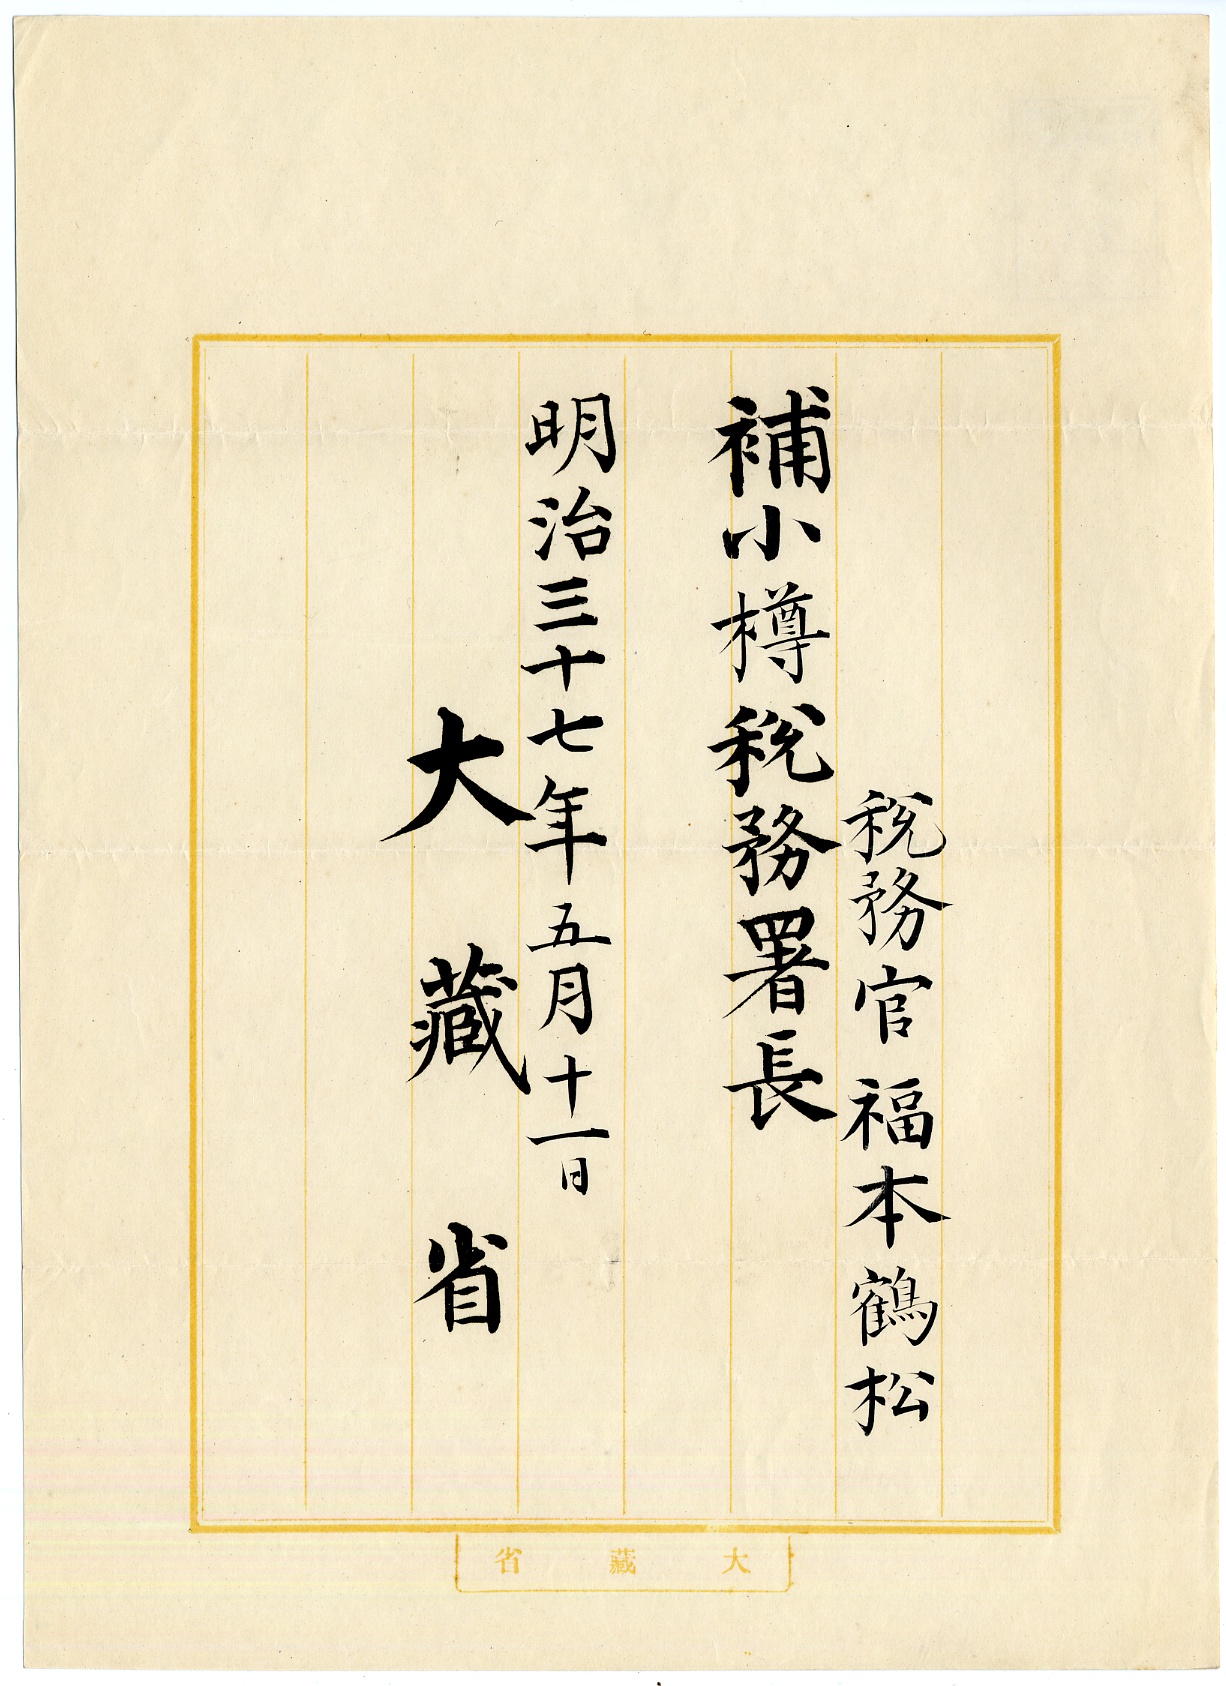 税務官福本鶴松
補小樽税務署長
明治三十七年五月十一日
大藏省
大藏省